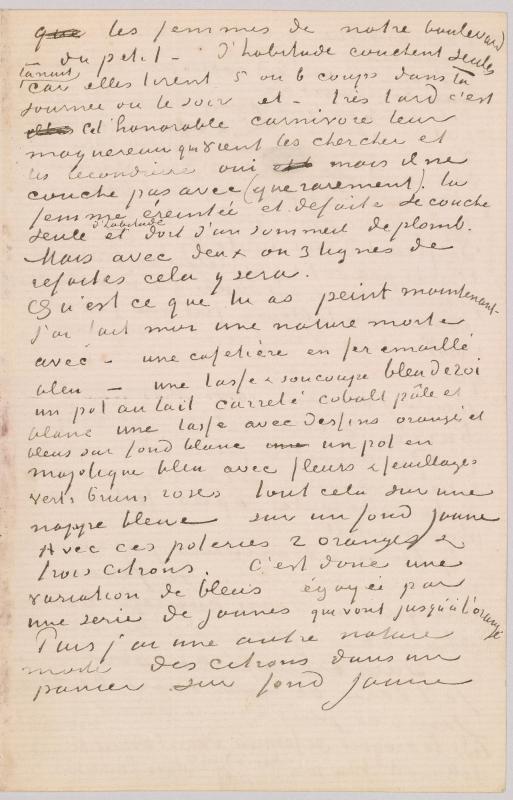 que les femmes de notre boulevard
du petit - d'habitude couchent seules
la nuit
car elles tirent 5 ou 6 coups dans la
journée ou le soir et - très tard c'est
cet honorable carnivore leur
maquereau qui vient les chercher et
les reconduire oui mais il ne
couche pas avec (que rarement). La
femme éreintée et défaite se couche
d'habitude
seule et dort d'un sommeil de plomb.
Mais avec deux ou 3 lignes de
refaites cela y sera.
Qu'est ce que tu as peint maintenant -
J'ai fait moi une nature morte
avec - une cafetière en fer emaillé
bleu - une tasse & soucoupe bleu de roi
un pot au lait carrelé cobalt pâle et
blanc une tasse avec dessins orangé et
bleus sur fond blanc un pot en
majolique bleu avec fleurs & feuillages
verts bruns roses tout cela sur une
nappe bleue sur un fond jaune
Avec ces poteries 2 oranges &
trois citrons. C'est donc une
variation de bleus égayée par
une serie de jaunes qui vont jusqu'à l'orangé
Puis j'ai une autre nature
morte des citrons dans un
panier sur fond jaune